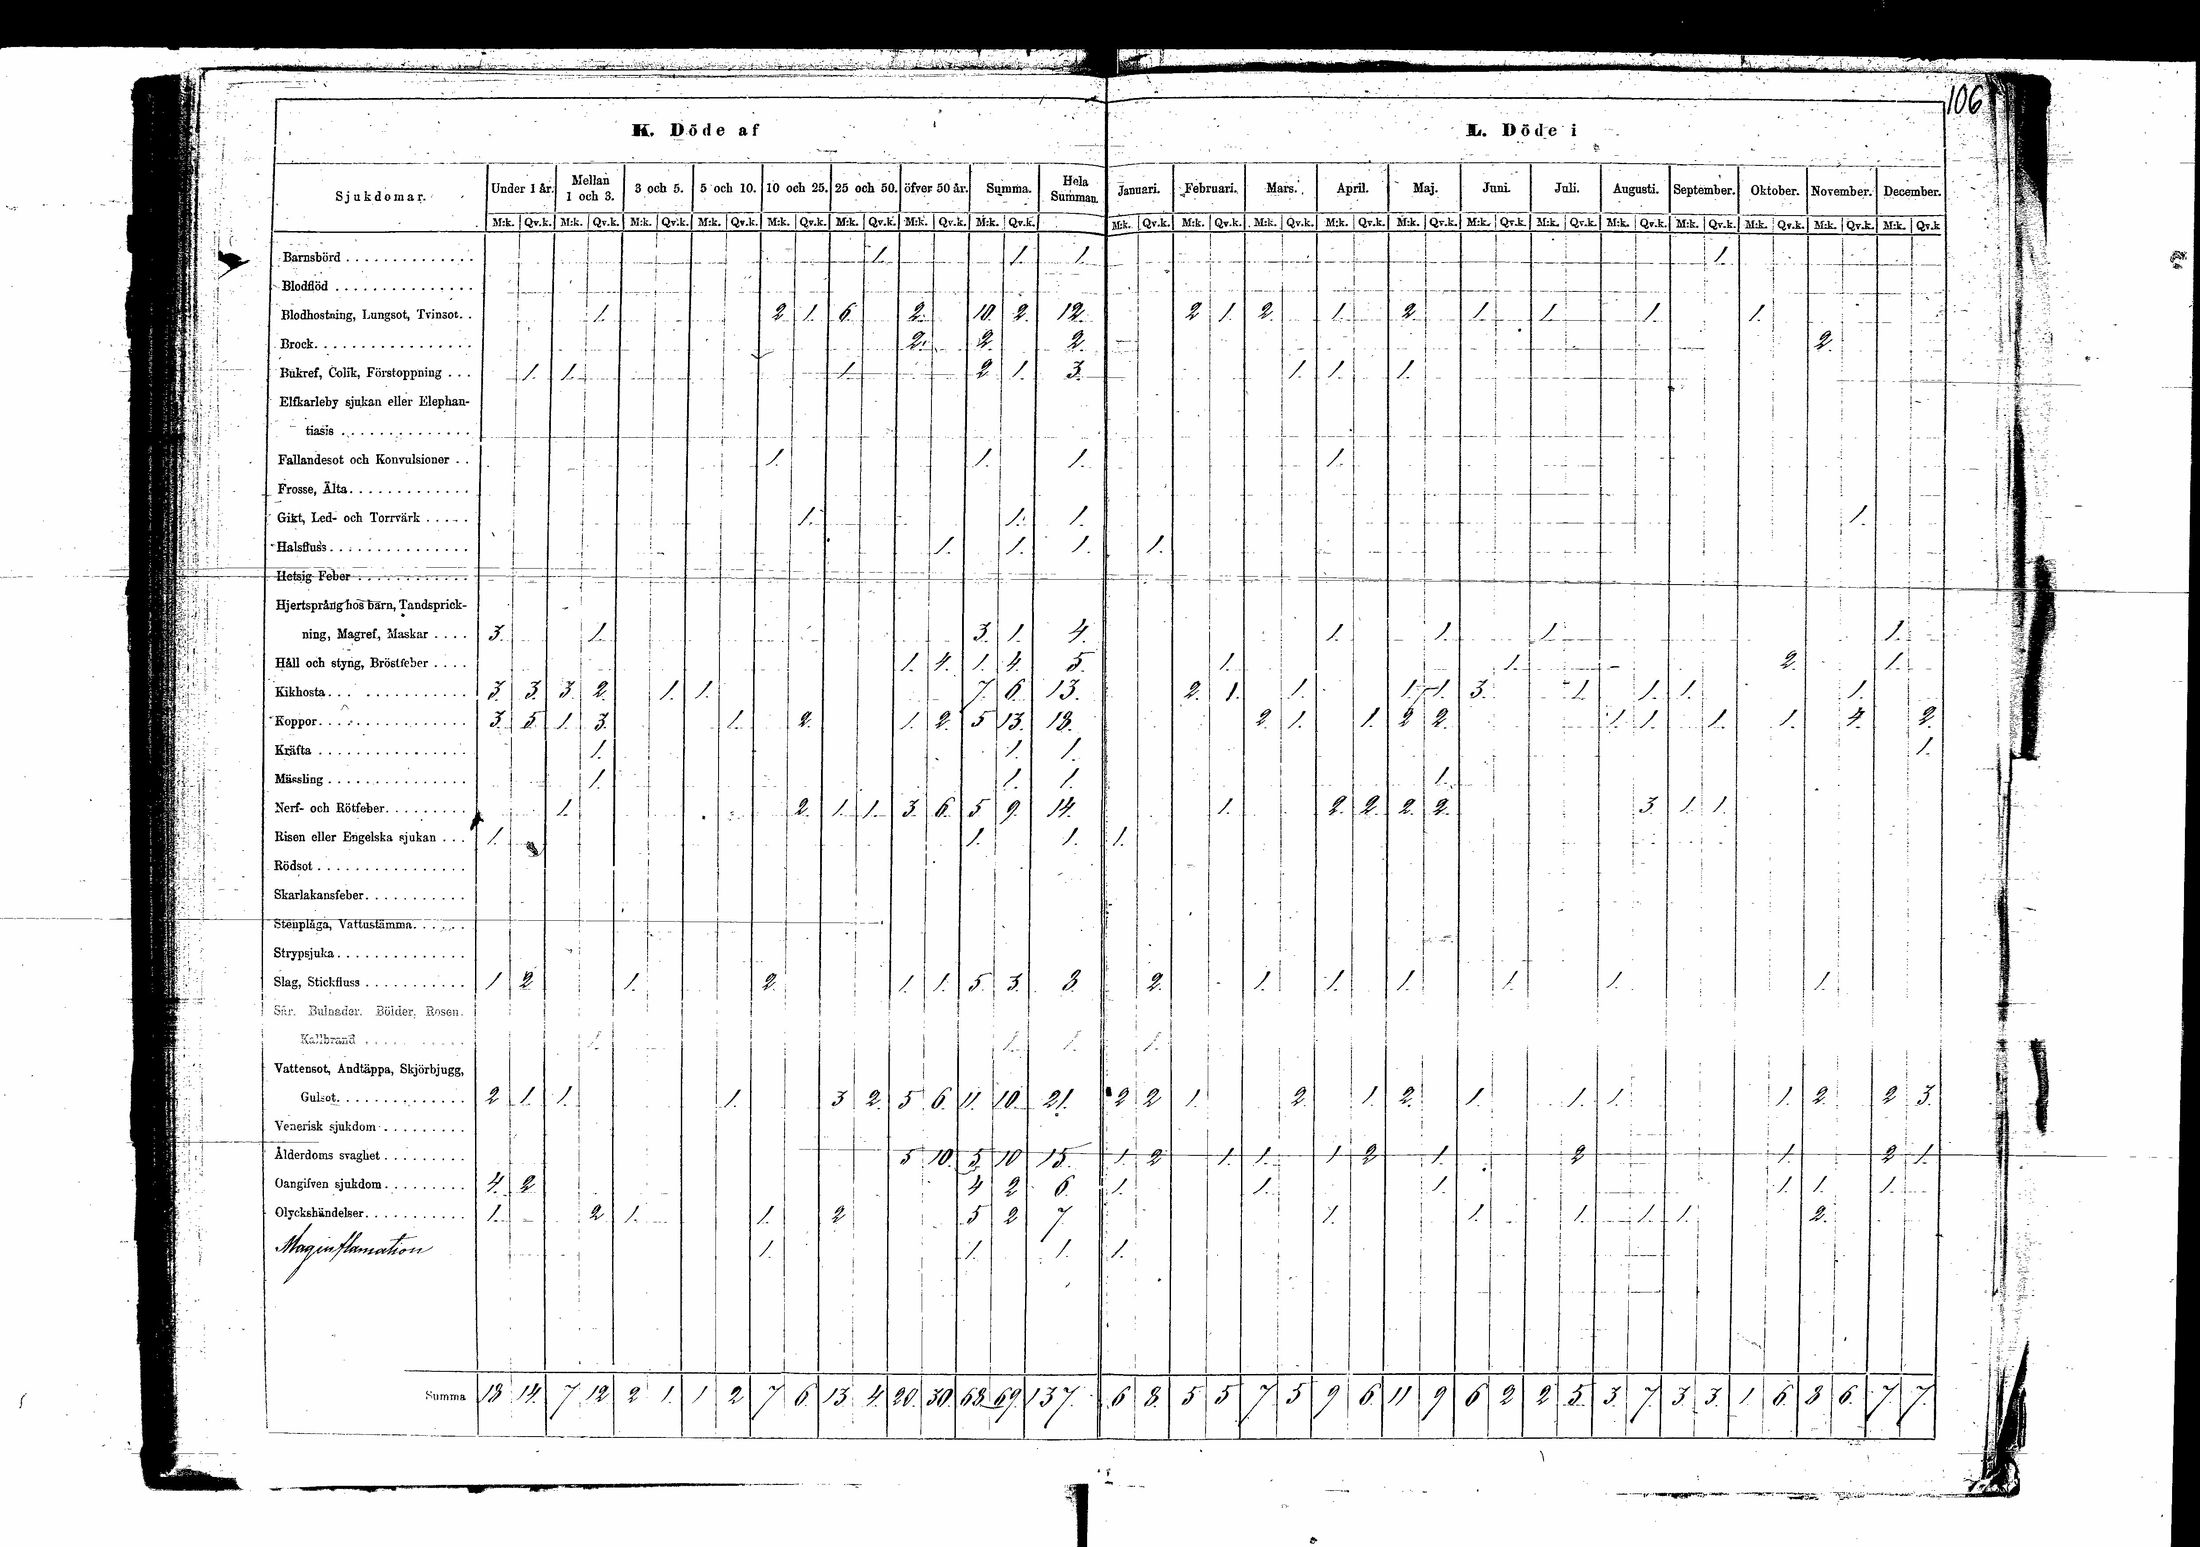 106
K. Döde af L. Döde i
Sjukdomar. Under 1 år. Mellan 1 och 3. 3 och 5. 5 och 10. 10 och 25. 25 och 50. öfver 50 år. Summa. Hela Summan. Januari. Februari. Mars. April. Maj. Juni. Juli. Augusti. September. Oktober. November. December.
M:k. Qv.k. M:k. Qv.k. M:k. Qv.k. M:k. Qv.k. M:k. Qv.k. M:k. Qv.k. M:k. Qv.k. M:k. Qv.k. M:k. Qv.k. M:k. Qv.k. M:k. Qv.k. M:k. Qv.k. M:k. Qv.k. M:k. Qv.k. M:k. Qv.k. M:k. Qv.k. M:k. Qv.k. M:k. Qv.k. M:k. Qv.k. M:k. Qv.k
Barnsbörd . . . . . . . . . . . . . . 1. 1. 1. 1.
Blodflöd . . . . . . . . . . . . . . .
Blodhostning, Lungsot, Tvinsot. . 1. 2 1. 6. 2. 10. 2. 12. 2 1. 2. 1. 2. 1. 1. 1. 1.
Brock. . . . . . . . . . . . . . . . . 2. 2. 2. 2.
Bukref, Colik, Förstoppning . . . 1. 1. 1. 2 1. 3. 1. 1. 1.
Elfkarleby sjukan eller Elephan-
tiasis . . . . . . . . . . . . . .
Fallandesot och Konvulsioner . . 1. 1. 1. 1.
Frosse, Älta. . . . . . . . . . . . .
Gikt, Led- och Torrvärk . . . . . 1. 1. 1. 1.
Halsfluss. . . . . . . . . . . . . . . 1. 1. 1. 1.
Hetsig Feber . . . . . . . . . . . .
Hjertsprång hos barn, Tandsprick-
ning, Magref, Maskar . . . . 3. 1. 3. 1. 4. 1. 1. 1. 1.
Håll och styng, Bröstfeber . . . . 1. 4. 1. 4. 5. 1. 1. 2. 1.
Kikhosta. . . . . . . . . . . . . . 3. 3. 3. 2. 1. 1. 7 6. 13. 2. 1. 1. 1. 1. 3. 1. 1. 1. 1.
Koppor. . . . . . . . . . . . . . . . 3. 5. 1. 3. 1. 2. 1. 2. 5 13. 18. 2 1. 1. 2 2. 1. 1. 1. 1. 4. 2.
Kräfta . . . . . . . . . . . . . . . . 1. 1. 1. 1.
Mässling . . . . . . . . . . . . . . . 1. 1. 1. 1.
Nerf- och Rötfeber. . . . . . . . . 1. 2. 1. 1. 3. 6. 5 9. 14. 1. 2. 2. 2. 2. 3. 1. 1.
Risen eller Engelska sjukan . . . 1. 1. 1. 1.
Rödsot . . . . . . . . . . . . . . . .
Skarlakansfeber. . . . . . . . . . .
Stenplåga, Vattustämma. . . . . .
Strypsjuka. . . . . . . . . . . . . .
Slag, Stickfluss . . . . . . . . . . . 1 2 1. 2. 1. 1. 5. 3. 8. 2. 1. 1. 1. 1. 1. 1.
Sår. Bulnader. Bölder. Rosen.
Kallbrand . . . . . . . . . . 1. 1. 1. 1.
Vattensot, Andtäppa, Skjörbjugg,
Gulsot. . . . . . . . . . . . . . 2 1. 1. 1. 3 2. 5 6. 11. 10. 21. 2 2 1. 2. 1. 2. 1. 1. 1. 1. 2. 2 3.
Venerisk sjukdom . . . . . . . . .
Ålderdoms svaghet . . . . . . . . . 5 10. 5. 10 15. 1. 2 1. 1. 1. 2 1. 2 1. 2 1.
Oangifven sjukdom . . . . . . . . . 4. 2 4 2 6. 1. 1. 1. 1. 1. 1.
Olyckshändelser. . . . . . . . . . . 1. 2 1. 1. 2 5 2 7. 1. 1. 1. 1. 1. 2.
Maginflamation 1. 1. 1. 1.
Summa 18 14. 7 12 2 1. 1 2 7 6. 13. 4. 20. 30. 68. 69. 137. 6 8. 5 5 7 5 9 6. 11 9 6 2 2 5. 3. 7. 3. 3. 1 6. 8 6. 7. 7.